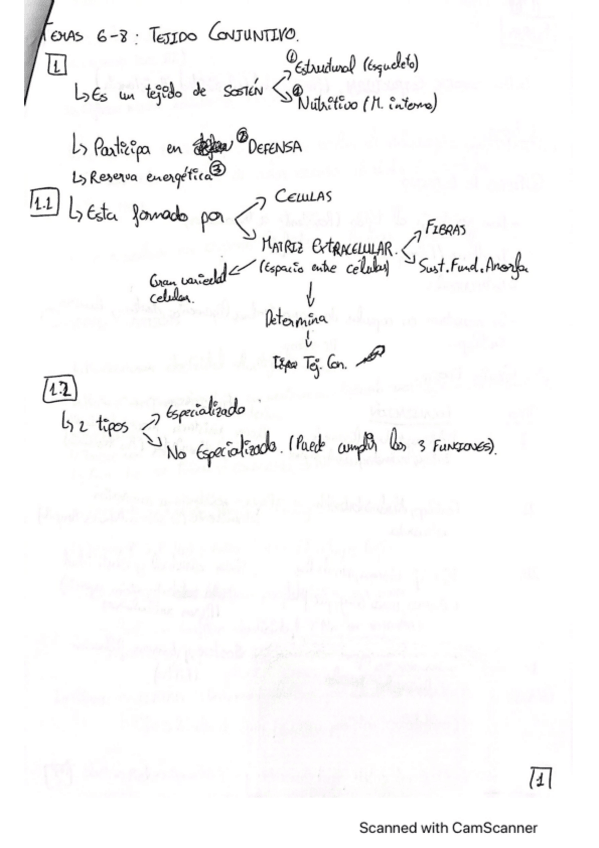 TEMAS 6-8: TEJIDO CONJUNTIVO.
1
↳ Es un tejido de SOSTÉN
① Estructural (Esqueleto)
④ Nutritivo (M. interno)
↳ Participa en ② DEFENSA
↳ Reserva energética ③
1.1 ↳ Esta formado por
CELULAS
MATRIZ EXTRACELULAR.
(Espacio entre células)
FIBRAS
Sust. Fund. Amorfa
Gran variedad
celular.
Determina
Tipos Tej. Con.
1.2
↳ 2 tipos
Especializado
No Especializado. (Puede cumplir las 3 FUNCIONES).
1
Scanned with CamScanner